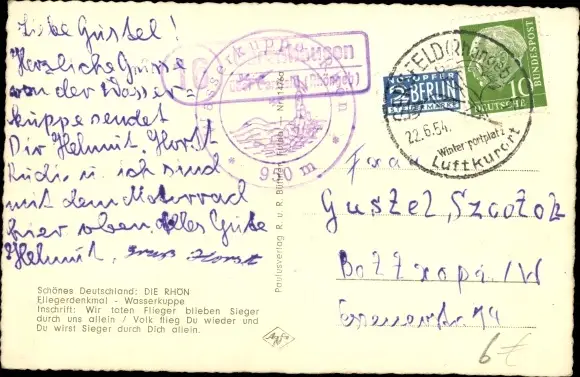 Liebe Gustel!
Herzliche Grüsse
von der Wasser=
kuppe sendet
Dir Helmut. Horst
Rudi u. ich sind
mit dem Motorrad
hier oben. Alles Gute
Helmut. Gruß Horst
Schönes Deutschland: DIE RHÖN
Fliegerdenkmal - Wasserkuppe
Inschrift: Wir toten Flieger blieben Sieger
durch uns allein / Volk flieg Du wieder und
Du wirst Sieger durch Dich allein.
950 m
Paulusverlag R. u. R.
NOTOPFER
2 BERLIN
STEUERMARKE
10
DEUTSCHE BUNDESPOST
FELD (Rhön)
22.6.54.
Wintersportplatz
Luftkurort
Frau
Gustel
Bottrop i/W
6€